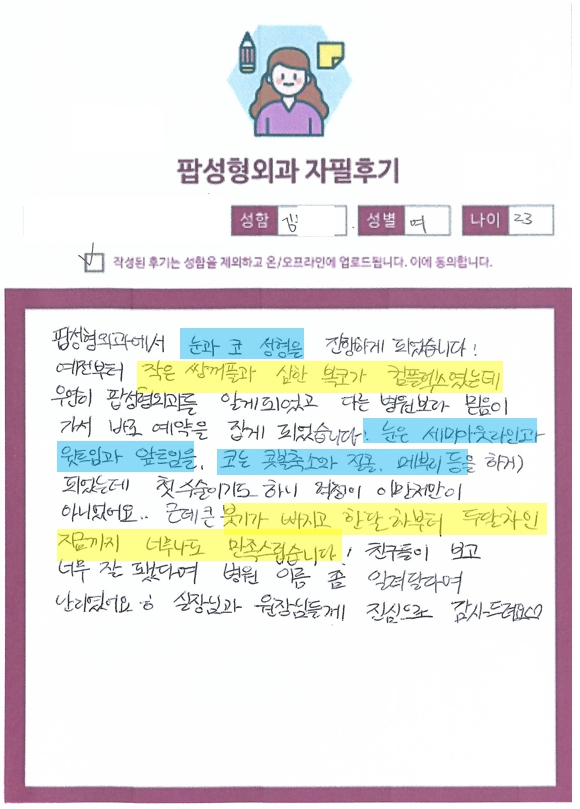 팝성형외과 자필후기
성함 김 성별 여 나이 23
작성된 후기는 성함을 제외하고 온/오프라인에 업로드됩니다. 이에 동의합니다.
팝성형외과에서 눈과 코 성형을 진행하게 되었습니다!
예전부터 작은 쌍꺼풀과 심한 복코가 컴플렉스였는데
우연히 팝성형외과를 알게되었고 다른 병원보다 믿음이
가서 바로 예약을 잡게 되었습니다! 눈은 세미아웃라인과
윗트임과 앞트임을, 코는 콧볼축소와 절골, 매부리 등을 하게
되었는데 첫수술이기도 하니 걱정이 이만저만이
아니었어요.. 근데 큰 붓기가 빠지고 한달차부터 두달차인
지금까지 너무나도 만족스럽습니다! 친구들이 보고
너무 잘 됐다며 병원 이름 좀 알려달라며
난리였어요ㅎ 실장님과 원장님들께 진심으로 감사드려요♡